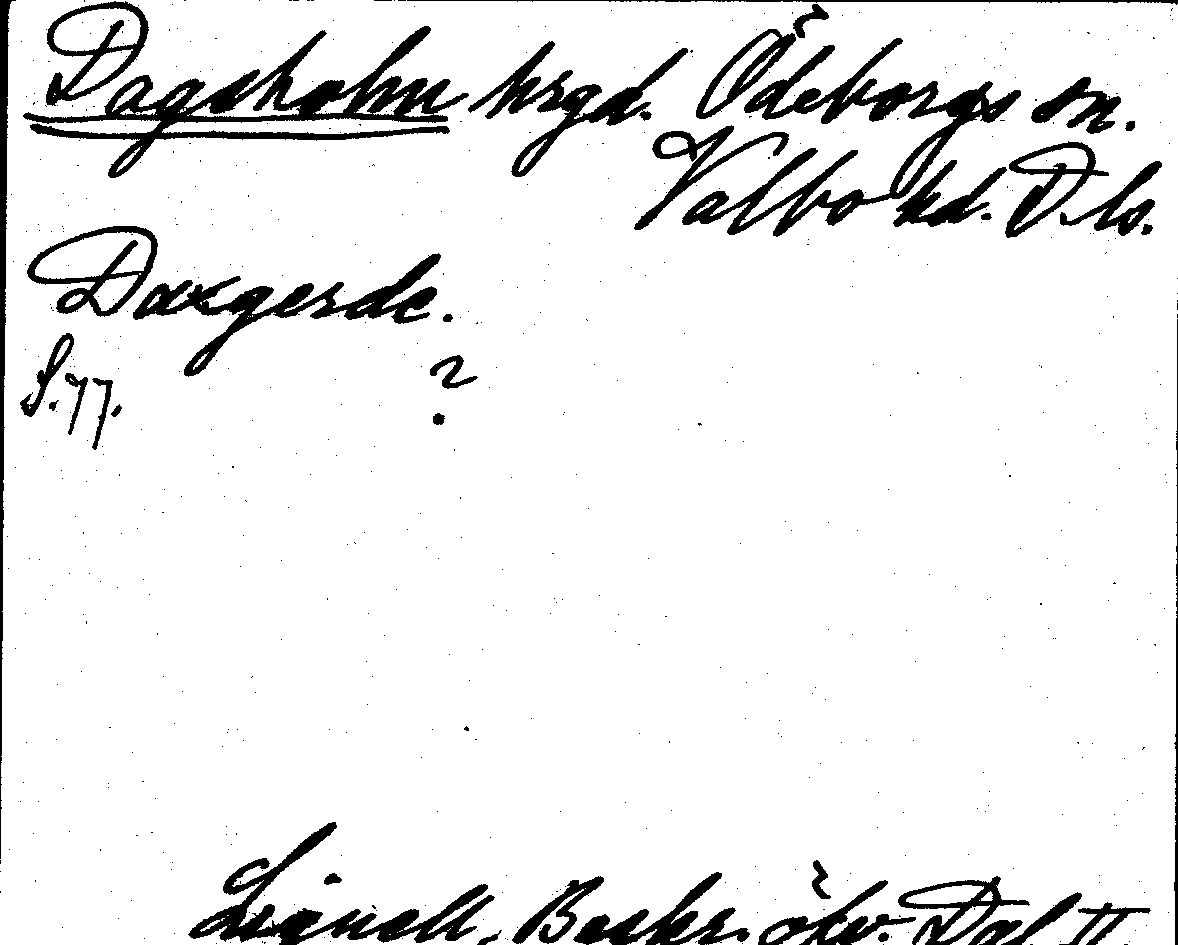 Dagsholm hrgd. Ödeborgs sn.
Valbo hd. D. ls.
Daxgerde.
S. 77. ?
Lignell, Beskr. öfv. Dal II